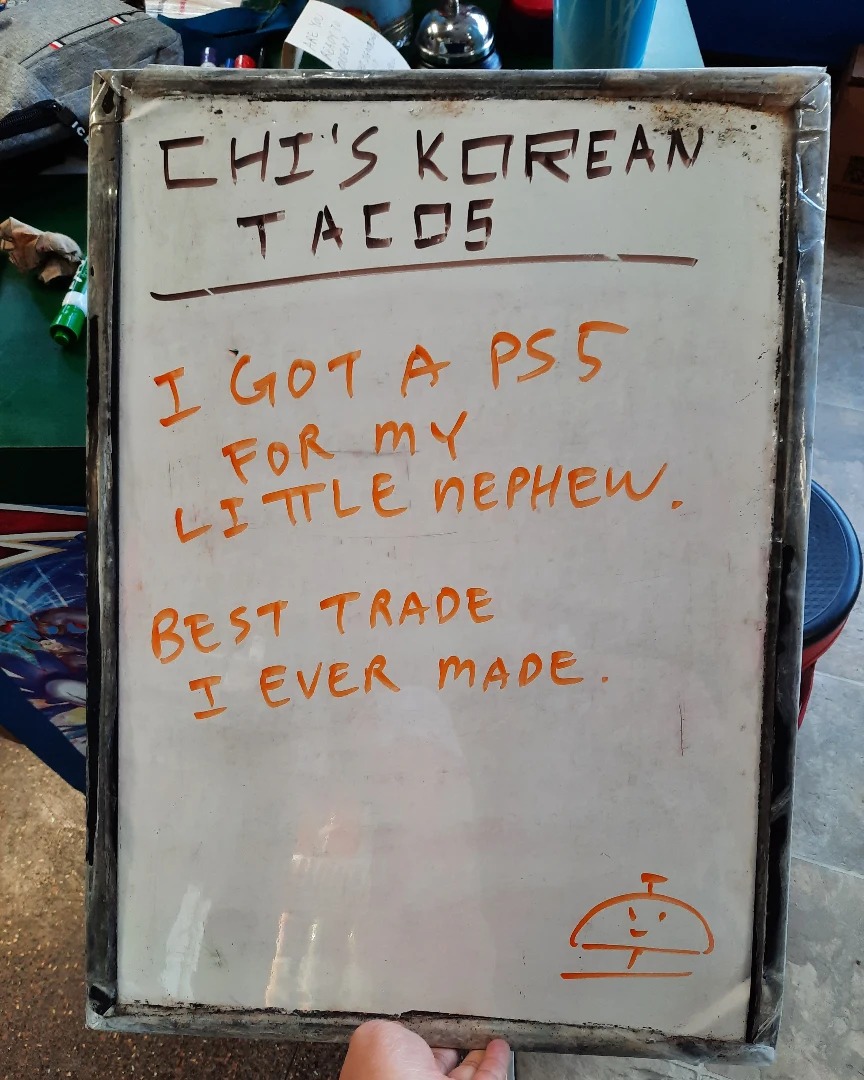 CHI'S KOREAN
TACOS
I GOT A PS5
FOR MY
LITTLE NEPHEW.
BEST TRADE
I EVER MADE.
ICE